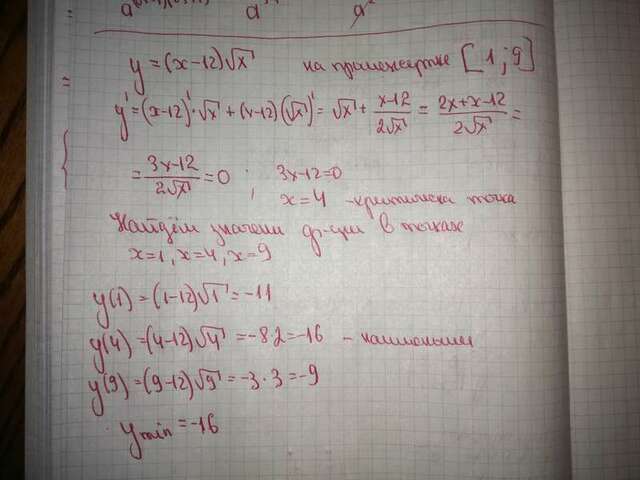 y=(x-12)√x на промежутке [1;9]
y'=(x-12)'·√x+(x-12)(√x)'=√x+\frac{x-12}{2√x}=\frac{2x+x-12}{2√x}=
=\frac{3x-12}{2√x}=0; 3x-12=0
x=4 -критическа точка
Найдём значени ф-ции в точках
x=1, x=4, x=9
y(1)=(1-12)√1=-11
y(4)=(4-12)√4=-8·2=-16 -наименьшее
y(9)=(9-12)√9=-3·3=-9
ymin=-16